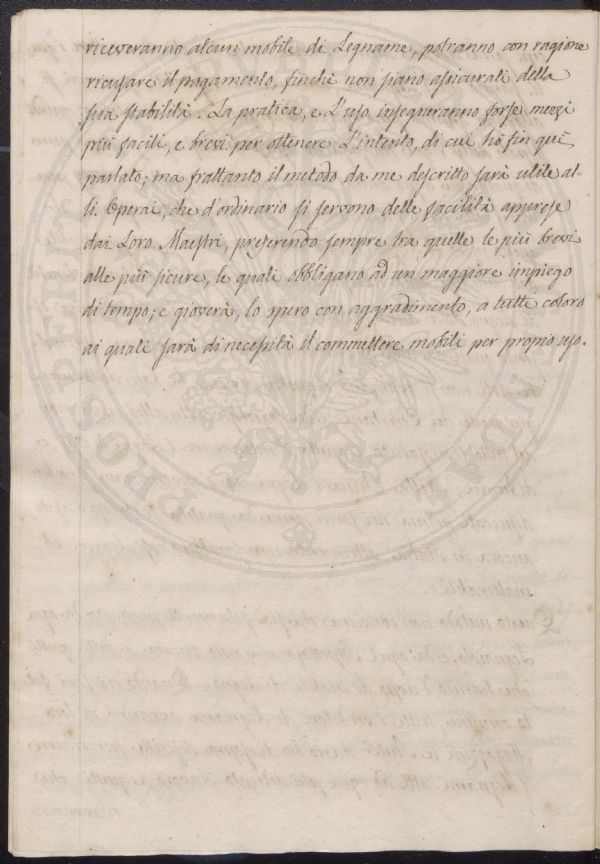 riceveranno alcun mobile di Legname, potranno con ragione
ricusare il pagamento, finchè non siano assicurati della
sua stabilità. La pratica, e L'uso insegneranno forse mezzi
più facili, e brevi per ottenere L'intento, di cui hò fin quì
parlato; ma frattanto il metodo da me descritto sarà utile al-
li Operai, che d'ordinario si servono delle facilità apprese
dai Loro Maestri, preferendo sempre tra quelle le più brevi
alle più sicure, le quali obbligano ad un maggiore impiego
di tempo; e gioverà, lo spero con aggradimento, a tutti coloro
ai quali sarà di necessità il commettere mobili per proprio uso.
PROSPERI